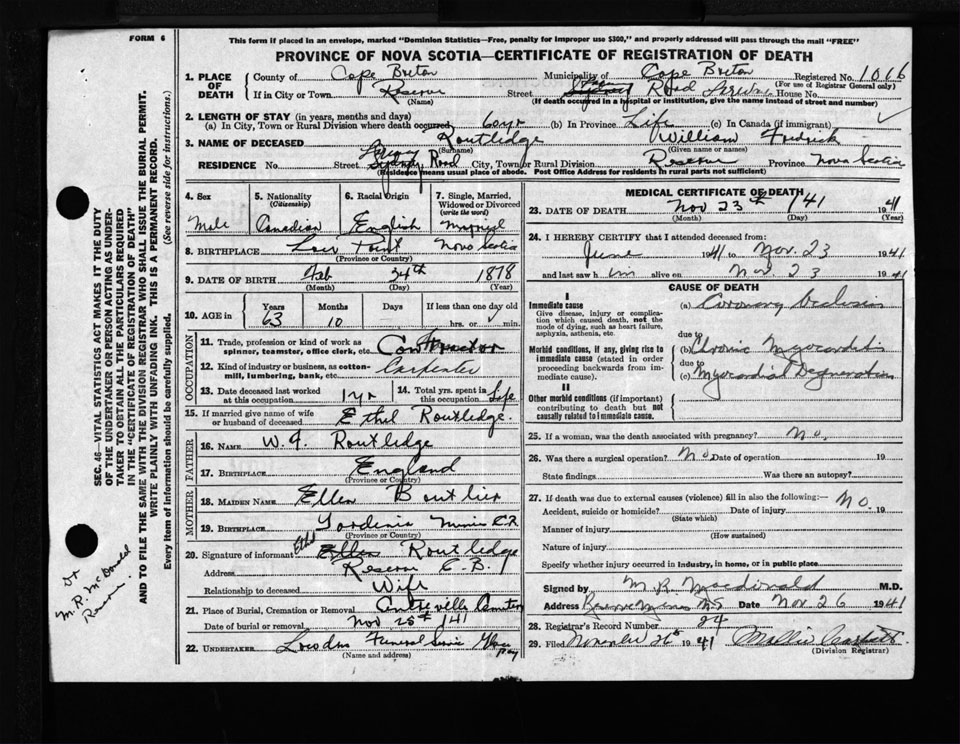 FORM 6
This form if placed in an envelope, marked "Dominion Statistics—Free, penalty for improper use $300," and properly addressed will pass through the mail "FREE"
PROVINCE OF NOVA SCOTIA—CERTIFICATE OF REGISTRATION OF DEATH
1. PLACE OF DEATH
County of Cape Breton Municipality of Cape Breton Registered No. 1066
(For use of Registrar General only)
If in City or Town Reserve (Name) Street Road House No.
(If death occurred in a hospital or institution, give the name instead of street and number)
2. LENGTH OF STAY (in years, months and days)
(a) In City, Town or Rural Division where death occurred 60yr (b) In Province Life (c) In Canada (if immigrant)
3. NAME OF DECEASED Routledge (Surname) William Fredrick (Given name or names)
RESIDENCE No. Street Road City, Town or Rural Division Reserve Province Nova Scotia
(Residence means usual place of abode. Post Office Address for residents in rural parts not sufficient)
4. Sex Male
5. Nationality (Citizenship) Canadian
6. Racial Origin English
7. Single, Married, Widowed or Divorced (write the word) Married
8. BIRTHPLACE Nova Scotia
(Province or Country)
9. DATE OF BIRTH Feb (Month) 24th (Day) 1878 (Year)
10. AGE in Years 63 Months 10 Days If less than one day old hrs. or min.
OCCUPATION
11. Trade, profession or kind of work as spinner, teamster, office clerk, etc. Contractor
12. Kind of industry or business, as cotton-mill, lumbering, bank, etc. Carpenter
13. Date deceased last worked at this occupation 1 yr
14. Total yrs. spent in this occupation Life
15. If married give name of wife or husband of deceased Ethel Routledge.
FATHER
16. NAME Routledge
17. BIRTHPLACE England
(Province or Country)
MOTHER
18. MAIDEN NAME Ellen Boutlier
19. BIRTHPLACE
(Province or Country)
20. Signature of informant Ethel Ellen Routledge
Address Reserve C.B.
Relationship to deceased Wife
21. Place of Burial, Cremation or Removal Centreville
Date of burial or removal Nov 25th /41
22. UNDERTAKER Funeral Glace Bay
(Name and address)
MEDICAL CERTIFICATE OF DEATH
23. DATE OF DEATH Nov 23rd /41 1941
(Month) (Day) (Year)
24. I HEREBY CERTIFY that I attended deceased from
June 1941 to Nov. 23 1941
and last saw him alive on Nov 23 1941
CAUSE OF DEATH
I
Immediate cause
Give disease, injury or complication which caused death, not the mode of dying, such as heart failure, asphyxia, asthenia, etc.
(a) Coronary
due to
Morbid conditions, if any, giving rise to immediate cause (stated in order proceeding backwards from immediate cause).
(b) Chronic Myocarditis
due to
(c) Myocardial Degeneration
II
Other morbid conditions (if important) contributing to death but not causally related to immediate cause.
25. If a woman, was the death associated with pregnancy? No.
26. Was there a surgical operation? No Date of operation 19
State findings Was there an autopsy?
27. If death was due to external causes (violence) fill in also the following:— No.
Accident, suicide or homicide? Date of injury 19
(State which)
Manner of injury
(How sustained)
Nature of injury
Specify whether injury occurred in Industry, in home, or in public place
Signed by M. R. Macdonald M.D.
Address Reserve Mines N.S. Date Nov 26 1941
28. Registrar's Record Number 24
29. Filed November 26th 1941 Mollie
(Division Registrar)
SEC. 46—VITAL STATISTICS ACT MAKES IT THE DUTY
OF THE UNDERTAKER OR PERSON ACTING AS UNDER-
TAKER TO OBTAIN ALL THE PARTICULARS REQUIRED
IN THE "CERTIFICATE OF REGISTRATION OF DEATH"
AND TO FILE THE SAME WITH THE DIVISION REGISTRAR WHO SHALL ISSUE THE BURIAL PERMIT.
WRITE PLAINLY WITH UNFADING INK. THIS IS A PERMANENT RECORD.
Every item of information should be carefully supplied. (See reverse side for instructions.)
Dr
M. R. McDonald
Reserve.